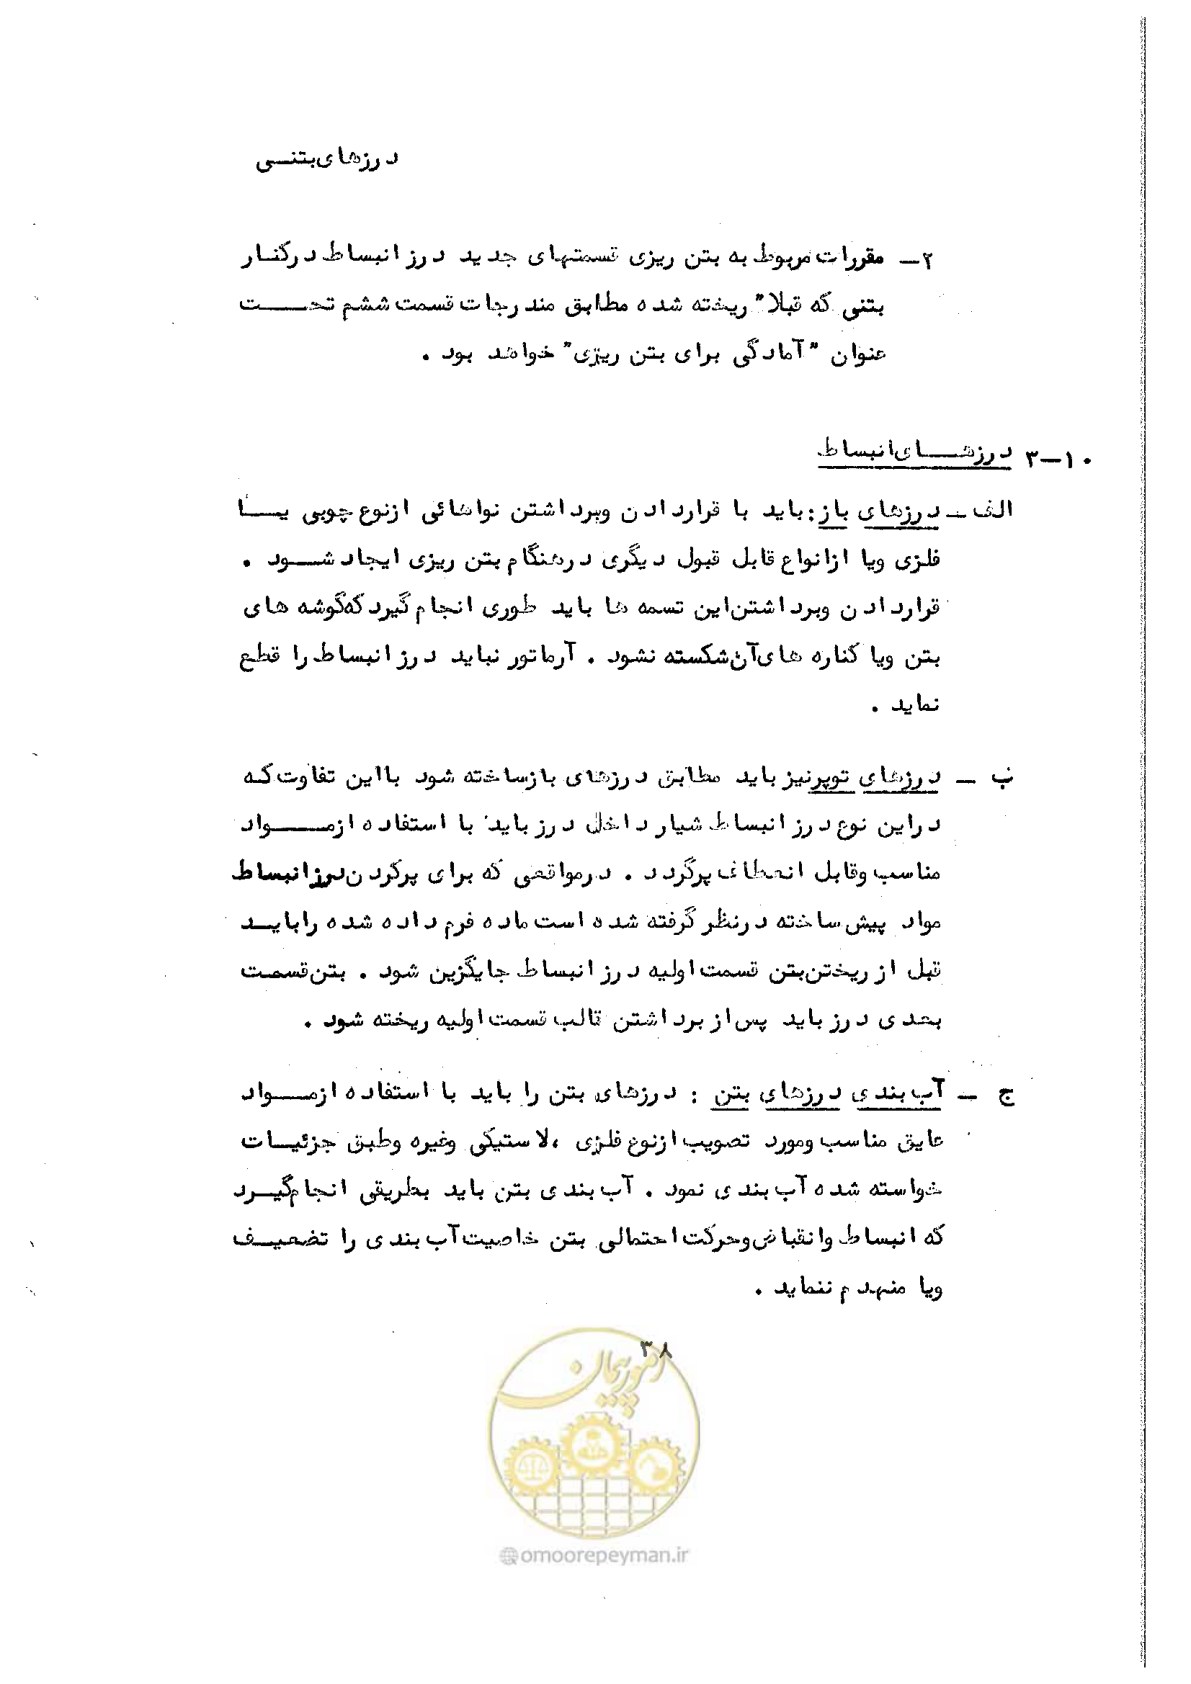 درزهای‌بتنـی
۲ــ مقررات مربوط به بتن ریزی قسمتهای جدید درز انبساط درکنار
بتنی که قبلا" ریخته شده مطابق مندرجات قسمت ششم تحـــت
عنوان "آمادگی برای بتن ریزی" خواهد بود .
۱۰–۳ درزهـــای‌انبساط
الف ــ درزهای باز: باید با قراردادن وبرداشتن نواهائی ازنوع چوبی یــا
فلزی ویا ازانواع قابل قبول دیگری درهنگام بتن ریزی ایجاد شــود .
قراردادن وبرداشتن‌این تسمه ها باید طوری انجام گیرد که‌گوشه های
بتن ویا کناره های‌آن‌شکسته نشود . آرماتور نباید درز انبساط را قطع
نماید .
ب ــ درزهای توپرنیز باید مطابق درزهای بازساخته شود بااین تفاوت‌کـه
دراین نوع درز انبساط شیار داخل درز باید با استفاده ازمـــواد
مناسب وقابل انعطاف پرگردد . درمواقعی که برای پرکردن‌درزانبساط
مواد پیش ساخته درنظر گرفته شده است ماده فرم داده شده رابایـد
قبل از ریختن‌بتن قسمت اولیه درز انبساط جایگزین شود . بتن‌قسمت
بعدی درز باید پس‌از برداشتن قالب قسمت اولیه ریخته شود .
ج ــ آب بندی درزهای بتن : درزهای بتن را باید با استفاده ازمـــواد
عایق مناسب ومورد تصویب ازنوع فلزی ،لاستیکی وغیره وطبق جزئیـات
خواسته شده آب بندی نمود . آب بندی بتن باید بطریقی انجام‌گیـرد
که انبساط وانقباض‌وحرکت احتمالی بتن خاصیت‌آب بندی را تضعیـف
ویا منهدم ننماید .
۳۸
امور پیمان
@omoorepeyman.ir